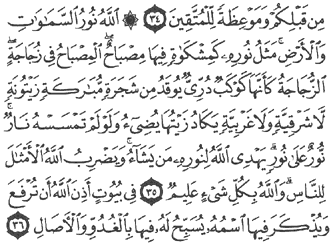 مِن قَبْلِكُمْ وَمَوْعِظَةً لِّلْمُتَّقِينَ ﴿٣٤﴾ ۞ ٱللَّهُ نُورُ ٱلسَّمَٰوَٰتِ
وَٱلْأَرْضِ ۚ مَثَلُ نُورِهِۦ كَمِشْكَوٰةٍ فِيهَا مِصْبَاحٌ ۖ ٱلْمِصْبَاحُ فِى زُجَاجَةٍ ۖ
ٱلزُّجَاجَةُ كَأَنَّهَا كَوْكَبٌ دُرِّىٌّ يُوقَدُ مِن شَجَرَةٍ مُّبَٰرَكَةٍ زَيْتُونَةٍ
لَّا شَرْقِيَّةٍ وَلَا غَرْبِيَّةٍ يَكَادُ زَيْتُهَا يُضِىٓءُ وَلَوْ لَمْ تَمْسَسْهُ نَارٌ ۚ
نُّورٌ عَلَىٰ نُورٍ ۗ يَهْدِى ٱللَّهُ لِنُورِهِۦ مَن يَشَآءُ ۚ وَيَضْرِبُ ٱللَّهُ ٱلْأَمْثَٰلَ
لِلنَّاسِ ۗ وَٱللَّهُ بِكُلِّ شَىْءٍ عَلِيمٌ ﴿٣٥﴾ فِى بُيُوتٍ أَذِنَ ٱللَّهُ أَن تُرْفَعَ
وَيُذْكَرَ فِيهَا ٱسْمُهُۥ يُسَبِّحُ لَهُۥ فِيهَا بِٱلْغُدُوِّ وَٱلْءَاصَالِ ﴿٣٦﴾